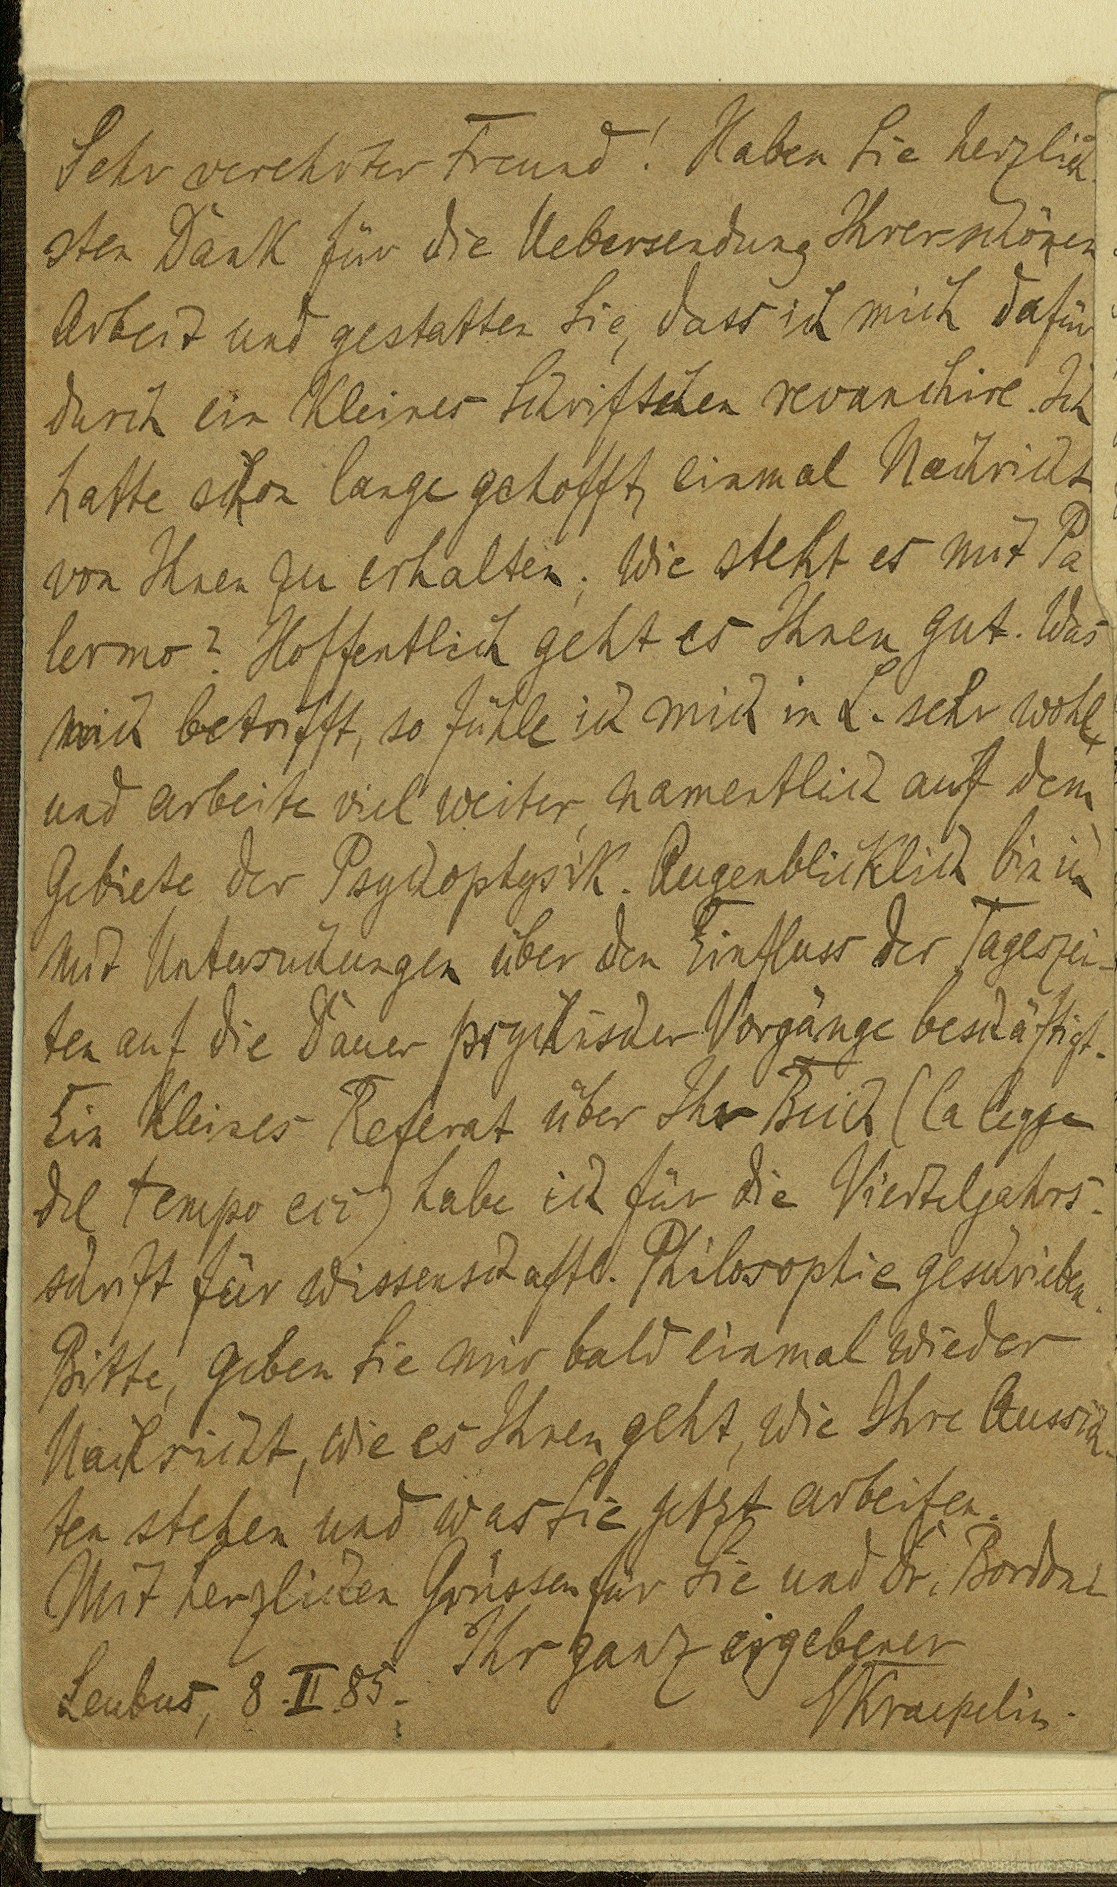 Sehr verehrter Freund! Haben Sie herzlich-
sten Dank für die Uebersendung Ihrer schönen
Arbeit und gestatten Sie, dass ich mich dafür
durch ein kleines Schriftchen revanchire. Ich
hatte schon lange gehofft, einmal Nachricht
von Ihnen zu erhalten. Wie steht es mit Pa
lermo? Hoffentlich geht es Ihnen gut. Was
mich betrifft, so fühle ich mich in L. sehr wohl,
und arbeite viel weiter, namentlich auf dem
Gebiete der Psychophysik. Augenblicklich bin ich
mit Untersuchungen über den Einfluss der Tageszei-
ten auf die Dauer psychischer Vorgänge beschäftigt.
Ein kleines Referat über Ihr Buch (la legge
del tempo etc) habe ich für die Vierteljahrs-
schrift für wissenschaftl. Philosophie geschrieben.
Bitte, geben Sie mir bald einmal wieder
Nachricht, wie es Ihnen geht, wie Ihre Aussich-
ten stehen und was Sie jetzt arbeiten.
Mit herzlichen Grüssen für Sie und Dr. Bordoni
Ihr ganz ergebener
Leubus, 8.II.85.
Kraepelin.